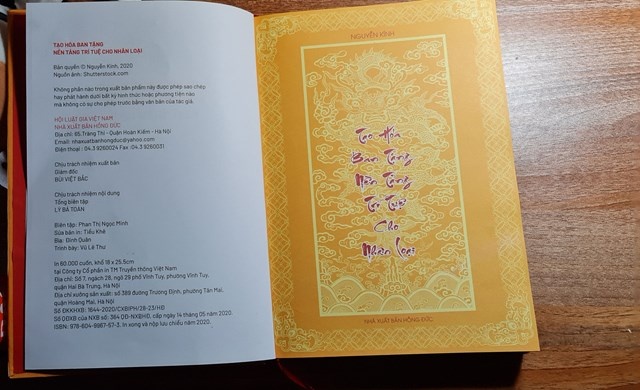 TẠO HÓA BAN TẶNG
NỀN TẢNG TRÍ TUỆ CHO NHÂN LOẠI
Bản quyền © Nguyễn Kính, 2020
Nguồn ảnh: Shutterstock.com
Không phần nào trong xuất bản phẩm này được phép sao chép
hay phát hành dưới bất kỳ hình thức hoặc phương tiện nào
mà không có sự cho phép trước bằng văn bản của tác giả.
HỘI LUẬT GIA VIỆT NAM
NHÀ XUẤT BẢN HỒNG ĐỨC
Địa chỉ: 65 Tràng Thi - Quận Hoàn Kiếm - Hà Nội
Email: nhaxuatbanhongduc@yahoo.com
Điện thoại : 04.3 9260024 Fax: 04.3 9260031
Chịu trách nhiệm xuất bản
Giám đốc
BÙI VIỆT BẮC
Chịu trách nhiệm nội dung
Tổng biên tập
LÝ BÁ TOÀN
Biên tập: Phan Thị Ngọc Minh
Sửa bản in: Tiểu Khê
Bìa: Đinh Quân
Trình bày: Vũ Lệ Thư
In 60.000 cuốn, khổ 18 x 25.5cm
tại Công ty Cổ phần in TM Truyền thông Việt Nam
Địa chỉ: Số 7, ngách 28, ngõ 29 phố Vĩnh Tuy, phường Vĩnh Tuy,
quận Hai Bà Trưng, Hà Nội
Địa chỉ xưởng sản xuất: số 389 đường Trương Định, phường Tân Mai,
quận Hoàng Mai, Hà Nội
Số ĐKXHXB: 1644-2020/CXBIPH/28-23/HĐ
Số QĐXB của NXB số: 364 QĐ-NXBHĐ, cấp ngày 14 tháng 05 năm 2020.
ISBN: 978-604-9987-57-3. In xong và nộp lưu chiểu năm 2020.
NGUYỄN KÍNH
Tạo Hóa
Ban Tặng
Nền Tảng
Trí Tuệ
Cho
Nhân Loại
NHÀ XUẤT BẢN HỒNG ĐỨC